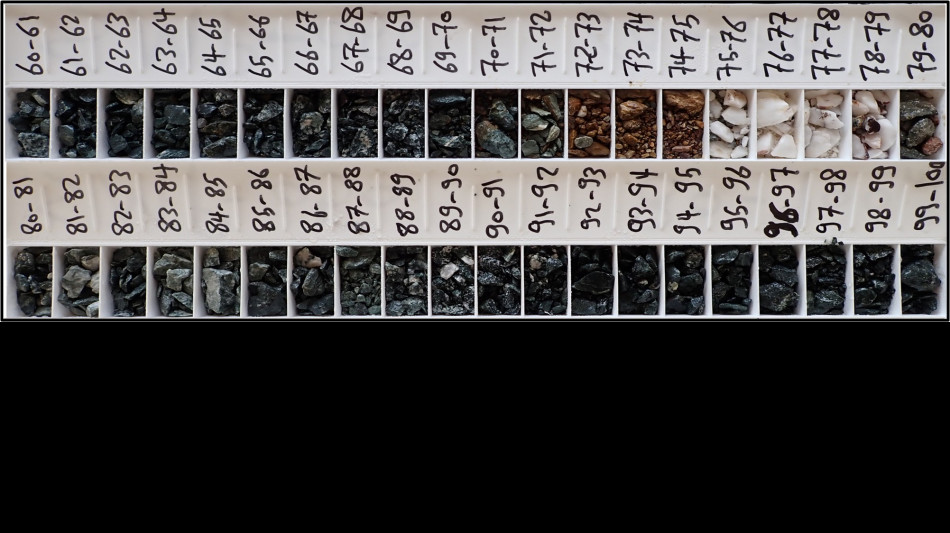 60-61 61-62 62-63 63-64 64-65 65-66 66-67 67-68 68-69 69-70 70-71 71-72 72-73 73-74 74-75 75-76 76-77 77-78 78-79 79-80
80-81 81-82 82-83 83-84 84-85 85-86 86-87 87-88 88-89 89-90 90-91 91-92 92-93 93-94 94-95 95-96 96-97 97-98 98-99 99-100